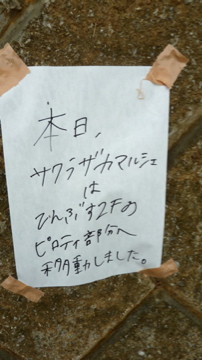 本日、
サクラザカマルシェ
は
ひんぷす2Fの
ピロティ部分へ
移動しました。